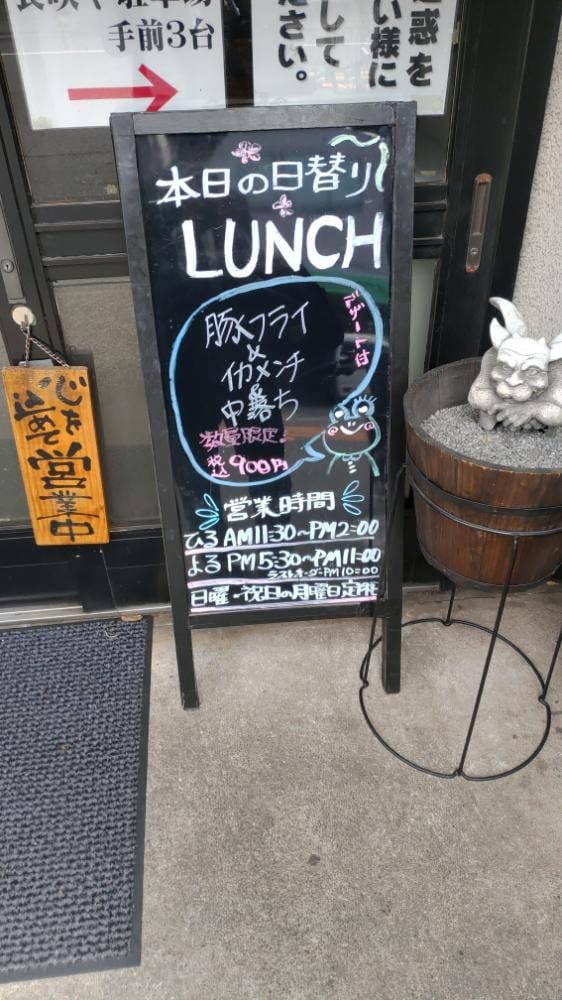 手前3台
迷惑を
い様に
して
ださい。
本日の日替り
LUNCH
デザート付
豚フライ
&
イカメンチ
&
中落ち
数量限定!
税込 900円
営業時間
ひる AM11:30~PM2:00
よる PM5:30~PM11:00
ラストオーダーPM10:00
日曜・祝日の月曜日定休
心を込めて営業中